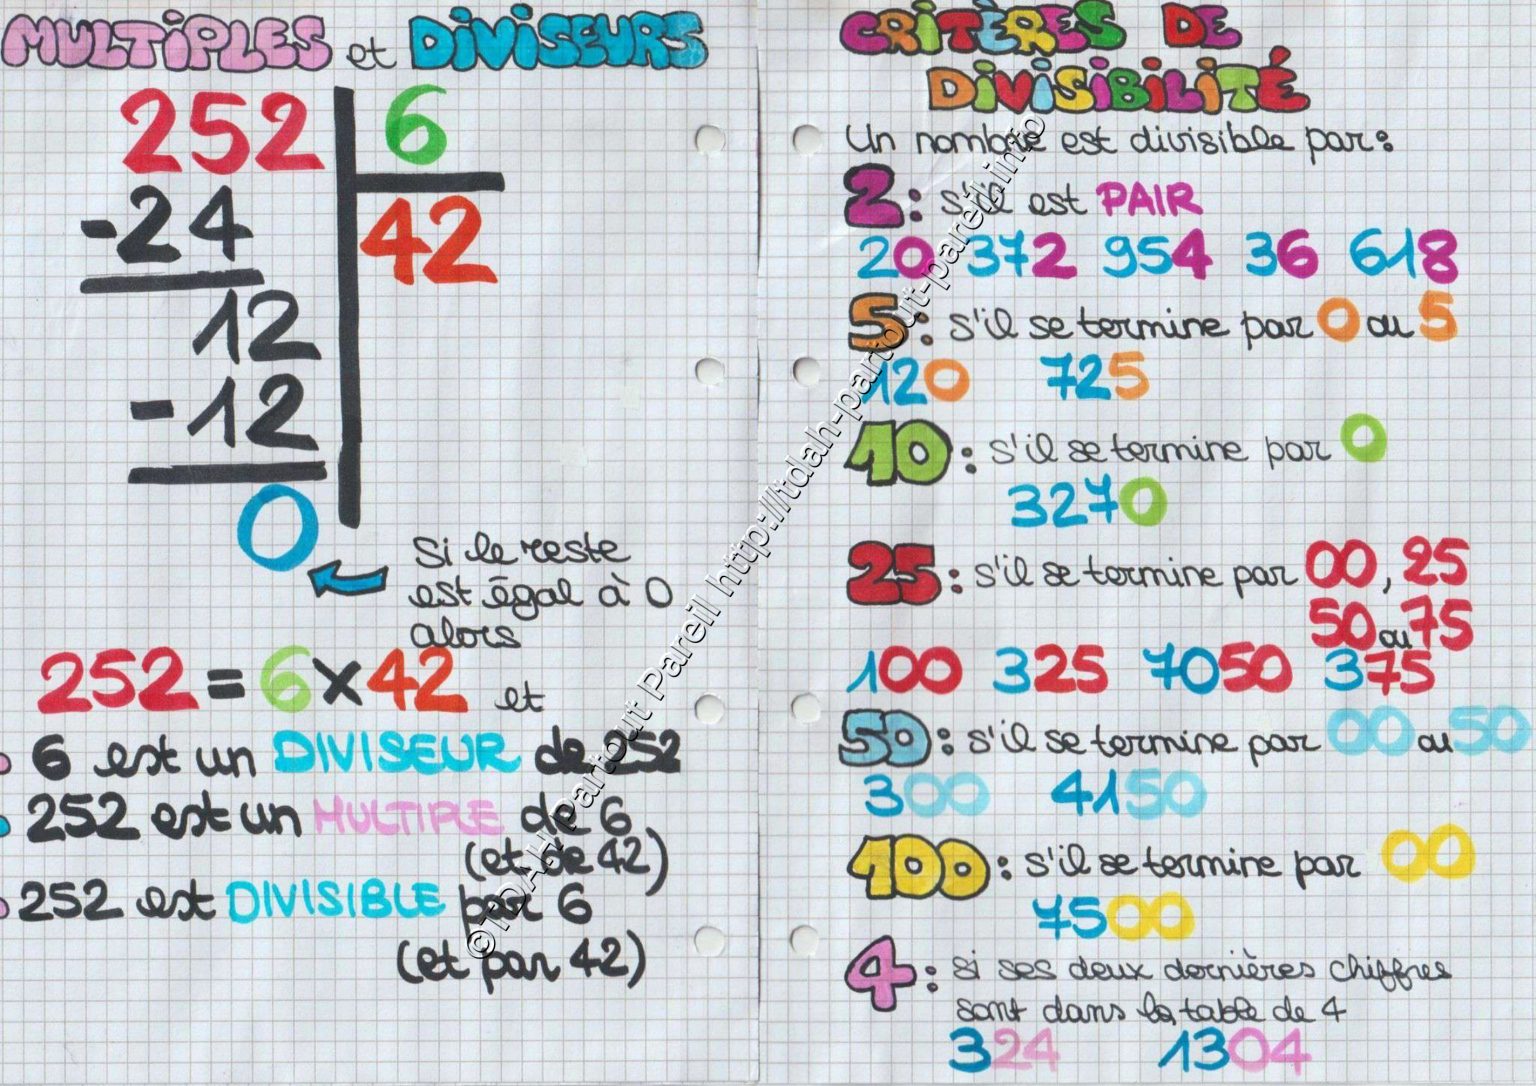 MULTIPLES et DIVISEURS
252 6
-24 42
12
-12
0
si le reste
est égal à 0
alors
252 = 6 x 42 et
6 est un DIVISEUR de 252
252 est un MULTIPLE de 6
(et de 42)
252 est DIVISIBLE par 6
(et par 42)
CRITÈRES DE
DIVISIBILITÉ
Un nombre est divisible par :
2 : s'il est PAIR
20 372 954 36 618
5 : s'il se termine par 0 ou 5
120 725
10 : s'il se termine par 0
3270
25 : s'il se termine par 00, 25
50 ou 75
100 325 7050 375
50 : s'il se termine par 00 ou 50
300 4150
100 : s'il se termine par 00
7500
4 : si ses deux dernières chiffres
sont dans la table de 4
324 1304
©TDAH Partout Pareil http://tdah-partout-pareil.info